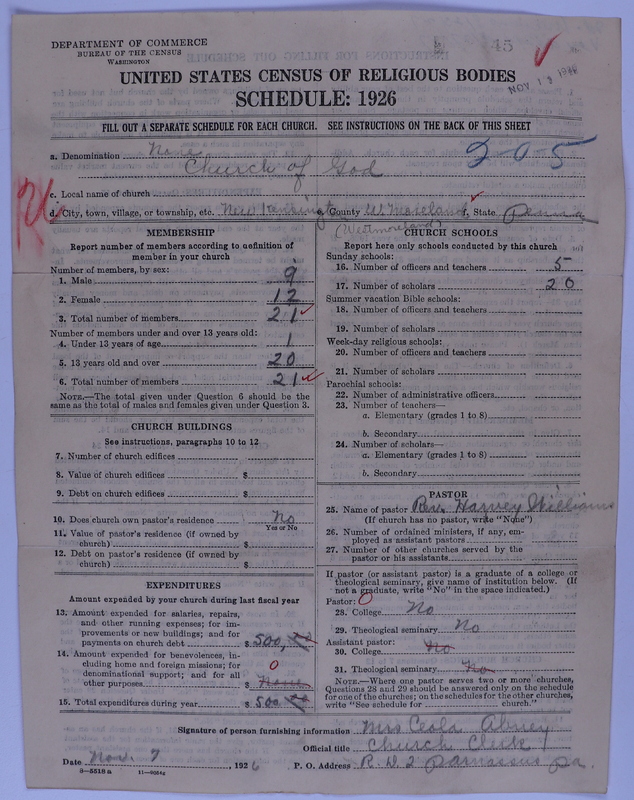 DEPARTMENT OF COMMERCE
BUREAU OF THE CENSUS
WASHINGTON
45
NOV 13 1926
UNITED STATES CENSUS OF RELIGIOUS BODIES
SCHEDULE: 1926
FILL OUT A SEPARATE SCHEDULE FOR EACH CHURCH. SEE INSTRUCTIONS ON THE BACK OF THIS SHEET
a. Denomination
Church of God
205
c. Local name of church
d. City, town, village, or township, etc. New Kensington County W Moreland f. State Penna
(Westmoreland)
MEMBERSHIP
Report number of members according to definition of
member in your church
Number of members, by sex:
1. Male 9
2. Female 12
3. Total number of members 21
Number of members under and over 13 years old:
4. Under 13 years of age 1
5. 13 years old and over 20
6. Total number of members 21
NOTE.—The total given under Question 6 should be
same as the total of males and females given under Question 3.
CHURCH BUILDINGS
See instructions, paragraphs 10 to 12
7. Number of church edifices
8. Value of church edifices $
9. Debt on church edifices $
10. Does church own pastor's residence No
Yes or No
11. Value of pastor's residence (if owned by
church) $
12. Debt on pastor's residence (if owned by
church) $
EXPENDITURES
Amount expended by your church during last fiscal year
13. Amount expended for salaries, repairs,
and other running expenses; for im-
provements or new buildings; and for
payments on church debt $ 500,00
14. Amount expended for benevolences, in-
cluding home and foreign missions; for
denominational support; and for all
other purposes $ None
0
15. Total expenditures during year $ 500 00
CHURCH SCHOOLS
Report here only schools conducted by this church
Sunday schools:
16. Number of officers and teachers 5
17. Number of scholars 20
Summer vacation Bible schools:
18. Number of officers and teachers
19. Number of scholars
Week-day religious schools:
20. Number of officers and teachers
21. Number of scholars
Parochial schools:
22. Number of administrative officers
23. Number of teachers—
a. Elementary (grades 1 to 8)
b. Secondary
24. Number of scholars—
a. Elementary (grades 1 to 8)
b. Secondary
PASTOR
25. Name of pastor Rev. Harvey Williams
(If church has no pastor, write "None")
26. Number of ordained ministers, if any, em-
ployed as assistant pastors
27. Number of other churches served by the
pastor or his assistants
If pastor (or assistant pastor) is a graduate of a college or
theological seminary, give name of institution below. (If
not a graduate, write "No" in the space indicated.)
Pastor: 0
28. College No
29. Theological seminary No
Assistant pastor:
30. College No
31. Theological seminary No
NOTE.—Where one pastor serves two or more churches,
Questions 28 and 29 should be answered only on the schedule
for one of the churches; on the schedules for the other churches,
write "See schedule for church."
Signature of person furnishing information Mrs Ceola Abney
Official title Church Clerk
Date Nov. 7, 1926 P. O. Address R. D. 2 Parnassus Pa.
8-5518 a 11-9054g